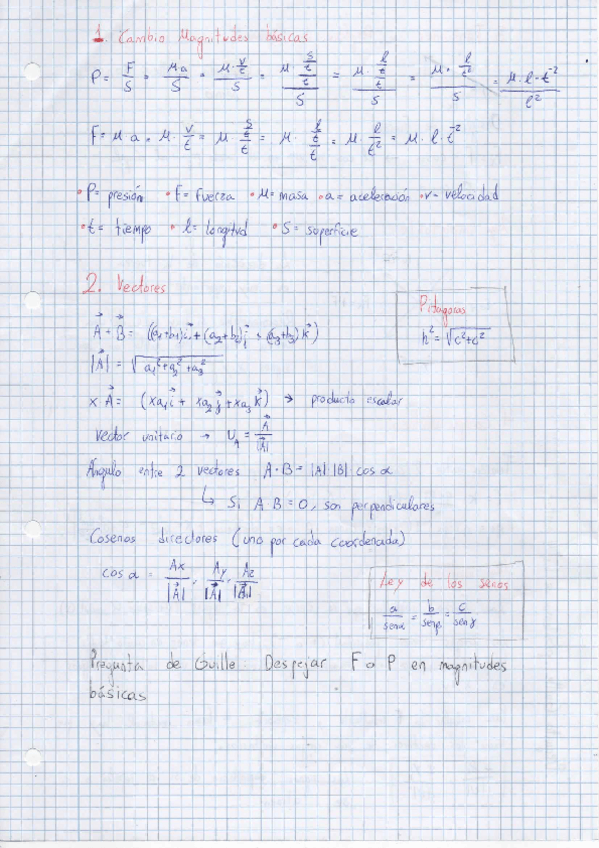 1. Cambio Magnitudes básicas
P = F/S = M·a/S = M·(v/t)/S = M·((s/t)/t)/S = M·((l/t)/t)/S = M·(l/t²)/S = M·l·t⁻²/l²
F = M·a = M·v/t = M·(s/t)/t = M·(l/t)/t = M·l/t² = M·l·t⁻²
• P = presión • F = Fuerza • M = masa • a = aceleración • v = velocidad
• t = tiempo • l = longitud • S = superficie
2. Vectores
Pitágoras
h² = √c²+c²
A⃗ + B⃗ = ((a₁+b₁)i⃗ + (a₂+b₂)j⃗ + (a₃+b₃)k⃗)
|A⃗| = √a₁²+a₂²+a₃²
x·A⃗ = (xa₁i⃗ + xa₂j⃗ + xa₃k⃗) → producto escalar
Vector unitario → U_A = A⃗/|A⃗|
Ángulo entre 2 vectores A·B = |A| |B| cos α
↳ Si A B = 0, son perpendiculares
Cosenos directores (uno por cada coordenada)
cos α = Ax/|A⃗|, Ay/|A⃗|, Az/|A⃗|
Ley de los senos
a/senα = b/senβ = c/senγ
Pregunta de Guille Despejar F o P en magnitudes
básicas